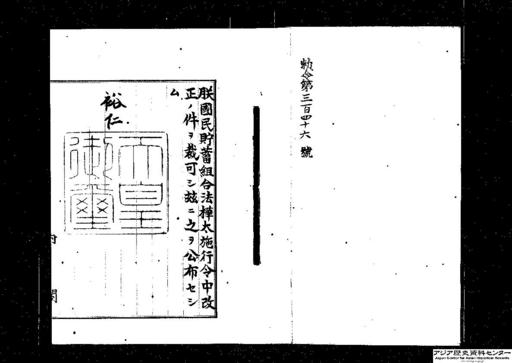 勅令第三百四十六號
朕國民貯蓄組合法樺太施行令中改
正ノ件ヲ裁可シ茲ニ之ヲ公布セシ
ム
裕仁
天皇
御璽
内閣
アジア歴史資料センター
Japan Center for Asian Historical Records